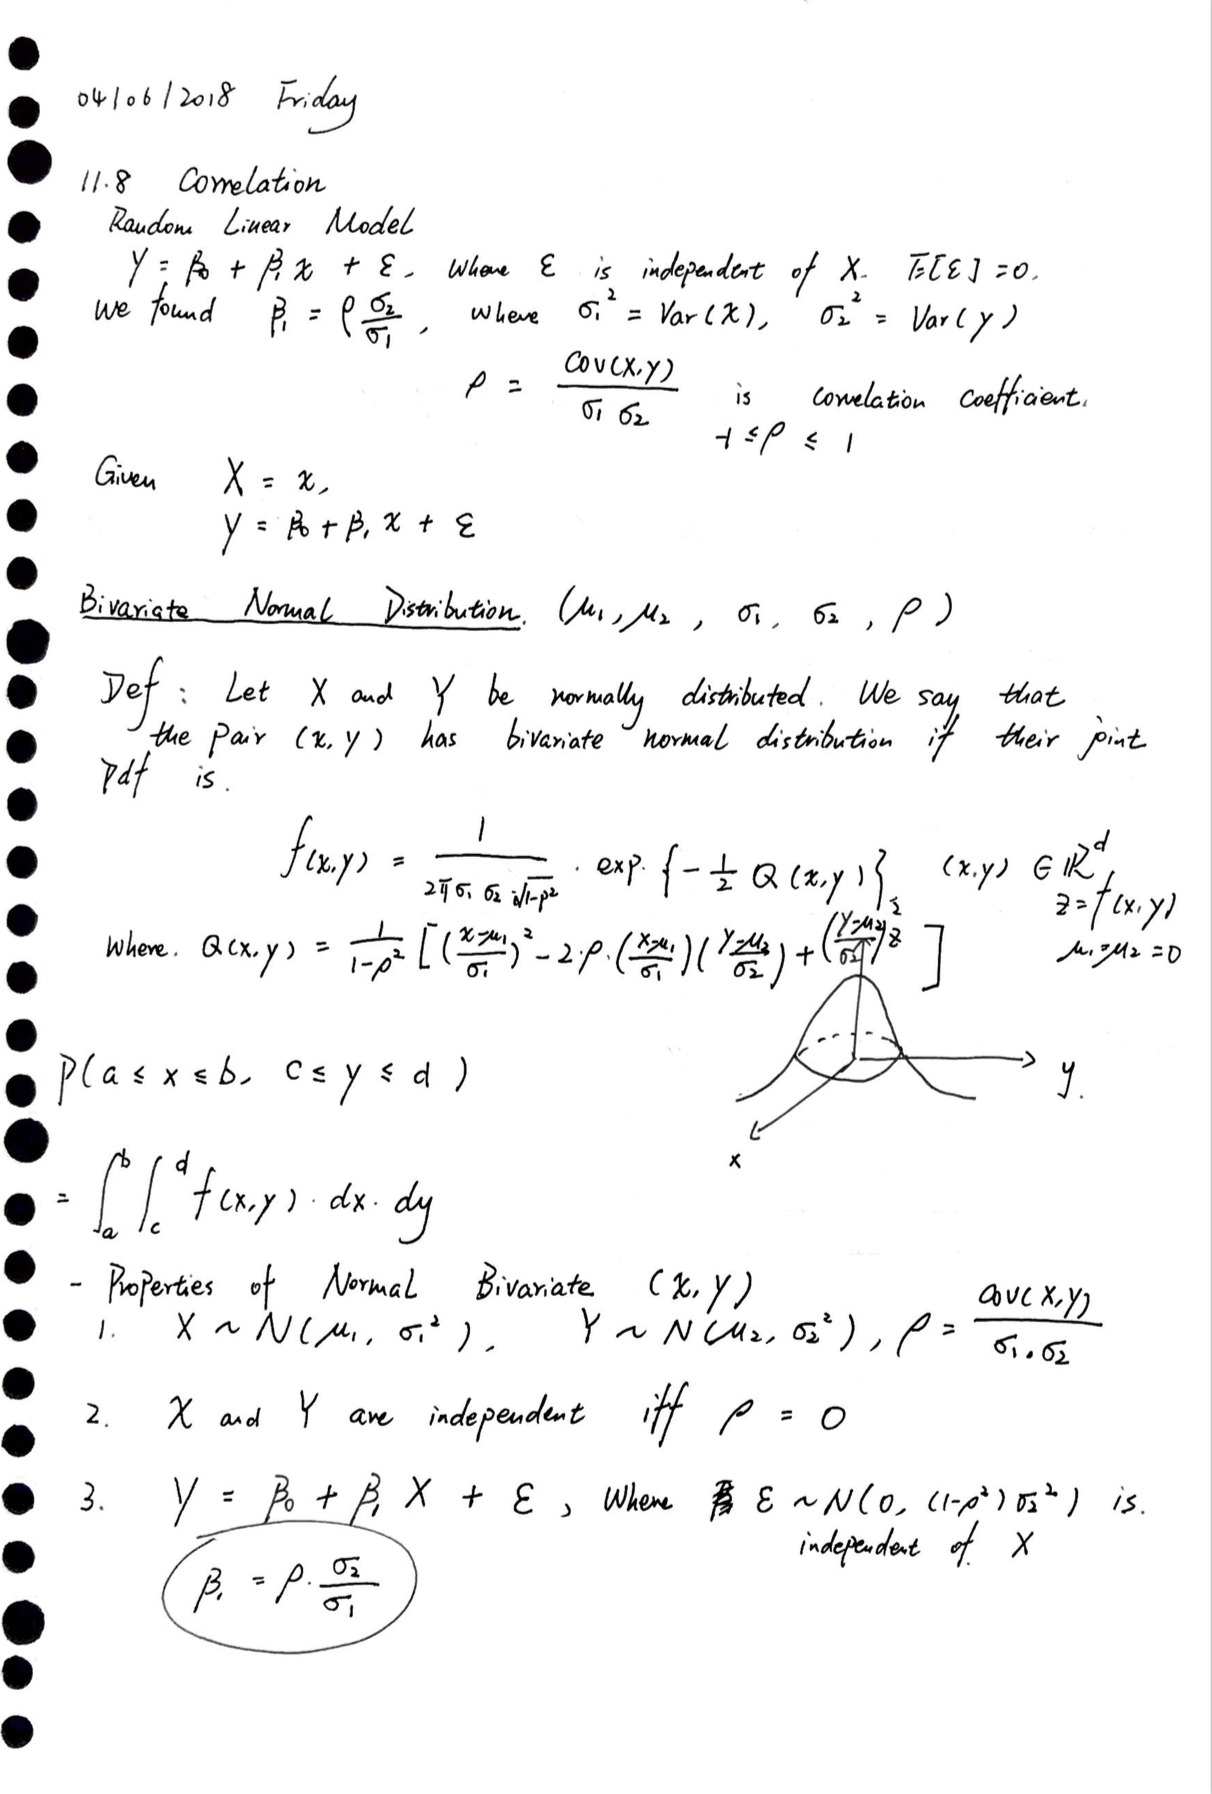 04/06/2018 Friday
11.8 Correlation
Random Linear Model
Y = β₀ + β₁ x + ε, where ε is independent of X. E[ε] = 0.
We found β₁ = ρ σ₂/σ₁, where σ₁² = Var(X), σ₂² = Var(y)
ρ = Cov(X,Y)/σ₁ σ₂ is correlation coefficient.
-1 ≤ ρ ≤ 1
Given X = x,
Y = β₀ + β₁ x + ε
Bivariate Normal Distribution. (μ₁, μ₂, σ₁, σ₂, ρ)
Def: Let X and Y be normally distributed. We say that
the pair (x, y) has bivariate normal distribution if their joint
pdf is.
f(x,y) = 1/2π σ₁ σ₂ √1-ρ² · exp. {-1/2 Q(x,y)}, (x,y) ∈ ℝᵈ
z = f(x,y)
where. Q(x,y) = 1/1-ρ² [(x-μ₁/σ₁)² - 2·ρ·(x-μ₁/σ₁)(y-μ₂/σ₂) + (y-μ₂/σ₂)²] μ₁=μ₂=0
z
P(a ≤ x ≤ b, c ≤ y ≤ d)
y.
x
= ∫ₐᵇ ∫꜀ᵈ f(x,y) · dx · dy
- Properties of Normal Bivariate (x, y)
1. X ~ N(μ₁, σ₁²), Y ~ N(μ₂, σ₂²), ρ = cov(X,Y)/σ₁·σ₂
2. X and Y are independent iff ρ = 0
3. Y = β₀ + β₁ X + ε, where ε ~ N(0, (1-ρ²) σ₂²) is.
independent of X
β₁ = ρ · σ₂/σ₁